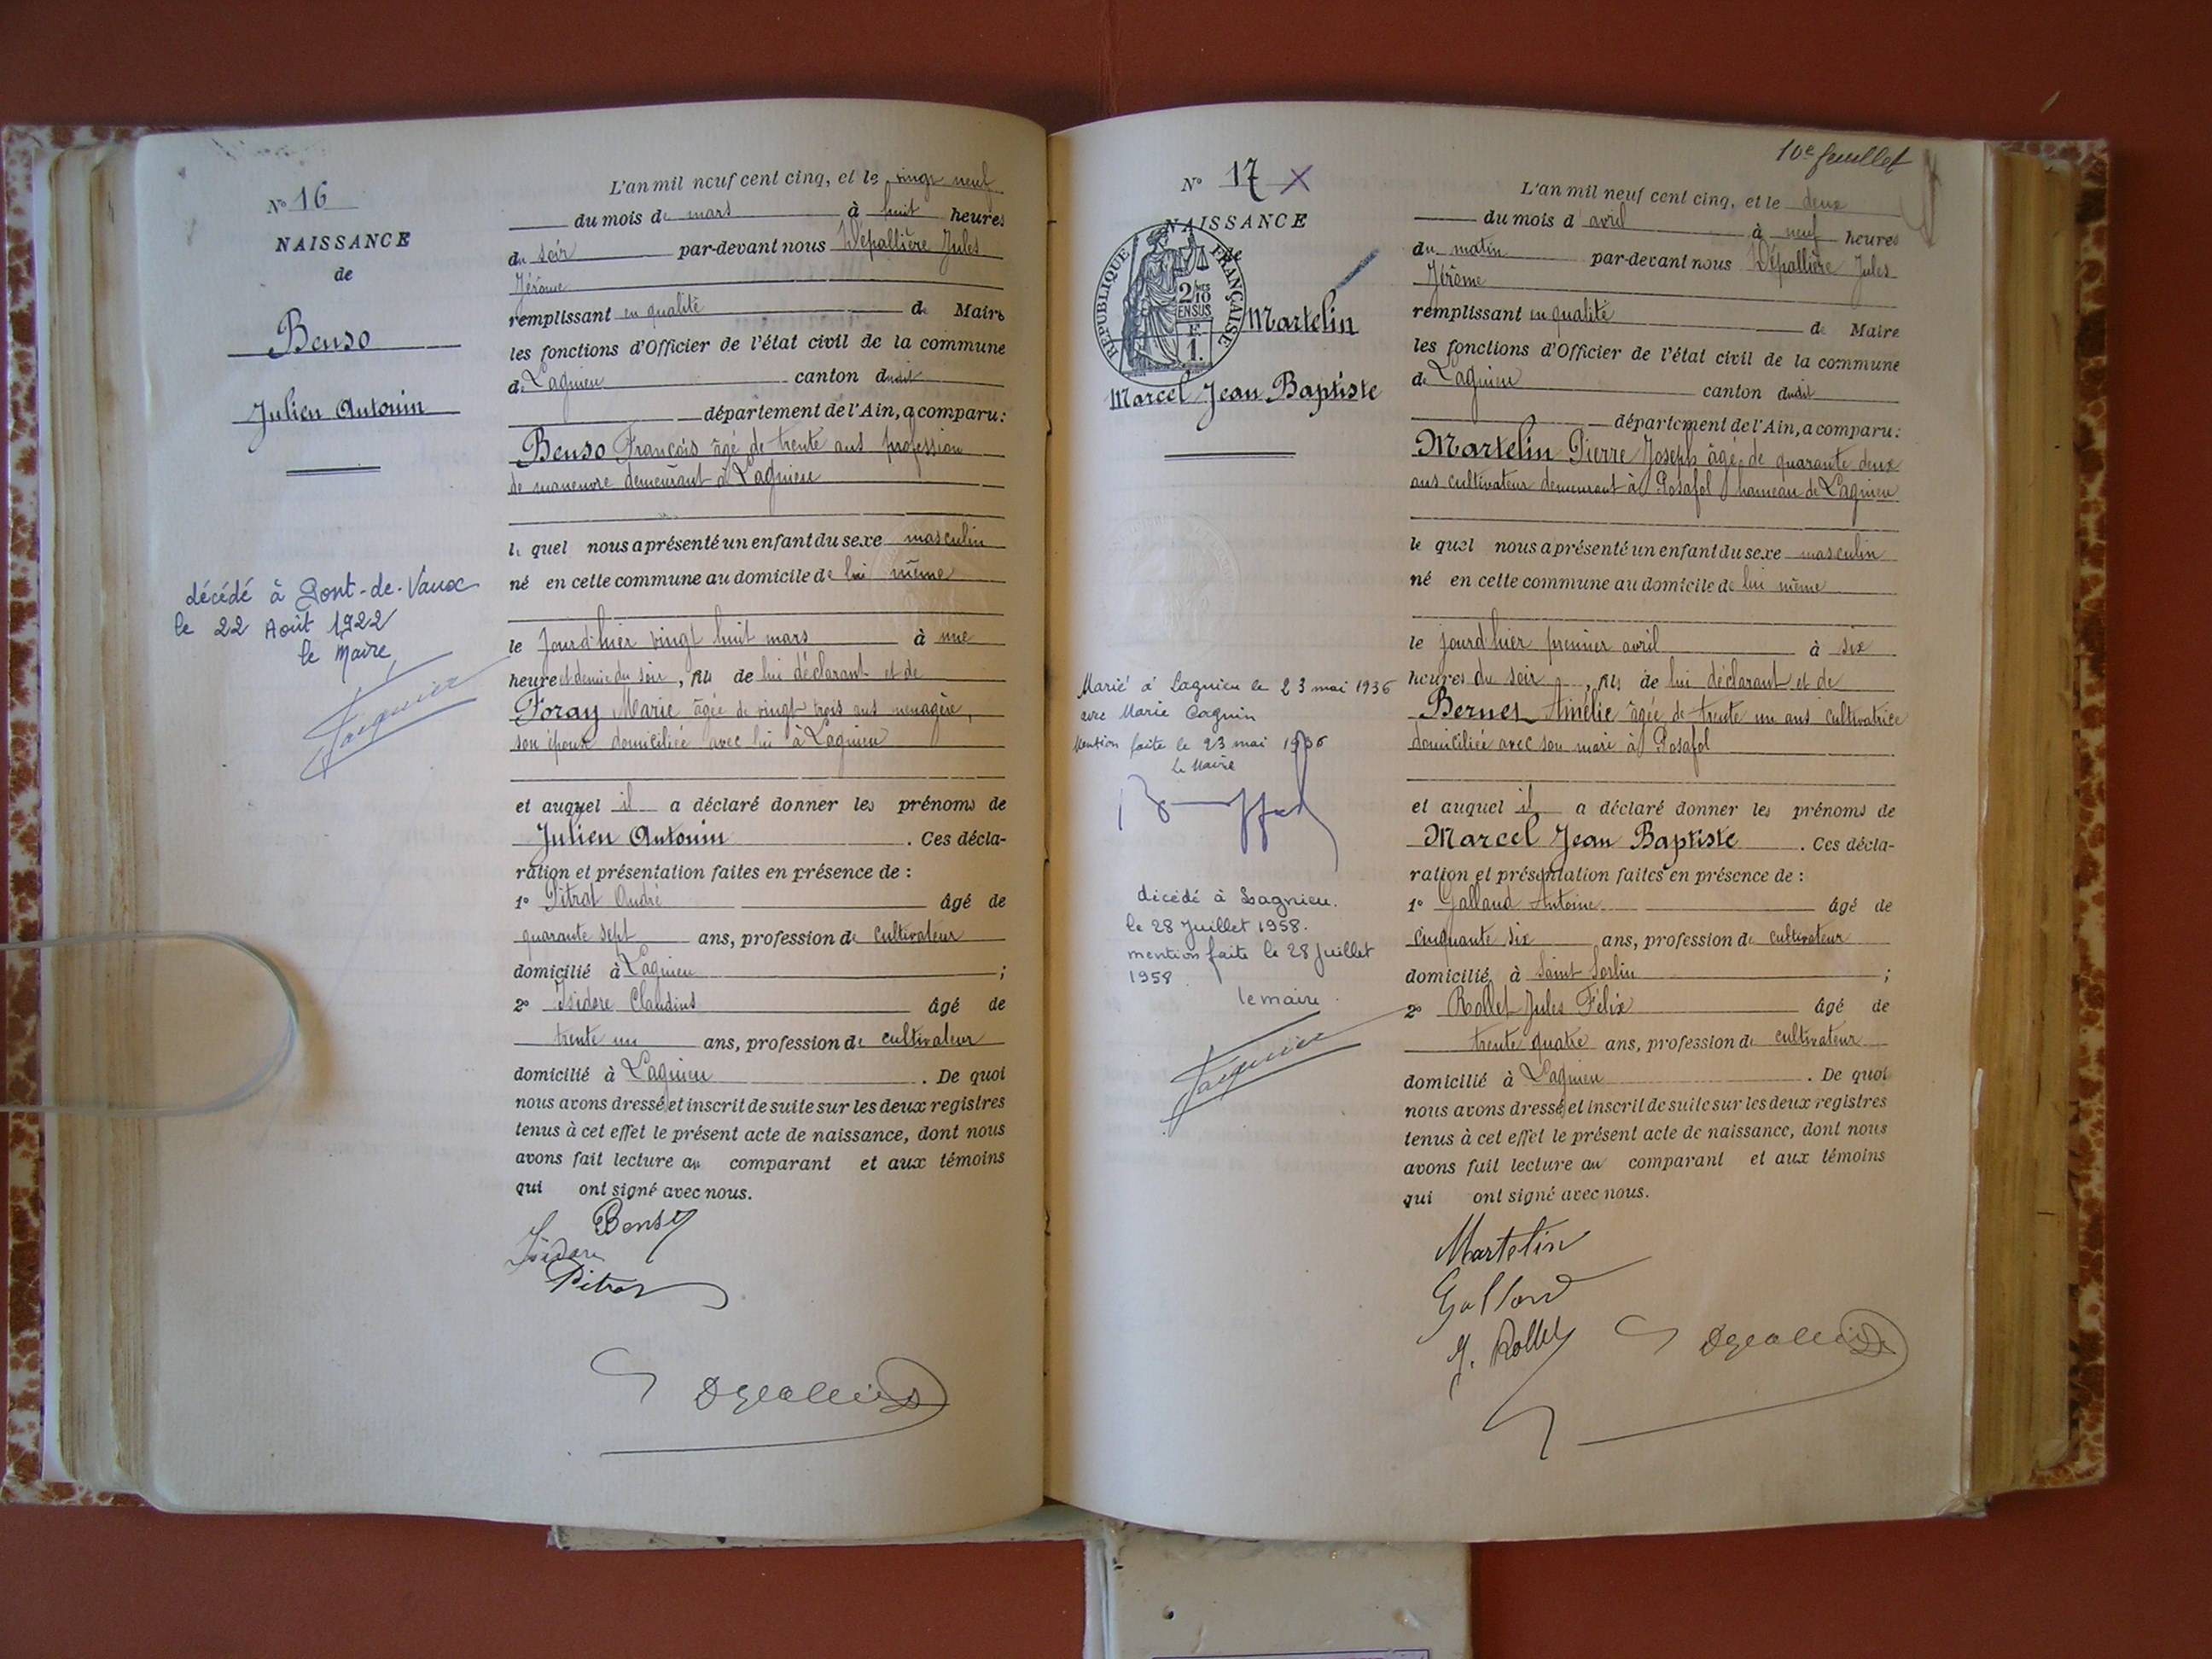 N° 16
NAISSANCE
de
Benso
Julien Antonin
décédé à Pont-de-Vaux
le 22 Août 1922
le Maire,
Jacquier
L'an mil neuf cent cinq, et le vingt neuf
du mois de mars à huit heures
du soir par-devant nous Dépallière Jules
Jérôme
remplissant en qualité de Maire
les fonctions d'Officier de l'état civil de la commune
de Lagnieu canton dudit
département de l'Ain, a comparu:
Benso François âgé de trente ans profession
de manœuvre demeurant à Lagnieu
lequel nous a présenté un enfant du sexe masculin
né en cette commune au domicile de lui même
le jourd'hier vingt huit mars à une
heure et demie du soir, fils de lui déclarant et de
Foray Marie âgée de vingt trois ans ménagère,
son épouse domiciliée avec lui à Lagnieu
et auquel il a déclaré donner les prénoms de
Julien Antonin. Ces décla-
ration et présentation faites en présence de :
1° Pitrat André âgé de
quarante sept ans, profession de cultivateur
domicilié à Lagnieu ;
2° Isidore Claudius âgé de
trente un ans, profession de cultivateur
domicilié à Lagnieu. De quoi
nous avons dressé et inscrit de suite sur les deux registres
tenus à cet effet le présent acte de naissance, dont nous
avons fait lecture au comparant et aux témoins
qui ont signé avec nous.
Benso
Isidore
Pitrat
10e feuillet
N° 17 X
NAISSANCE
de
RÉPUBLIQUE FRANÇAISE
2/10 MES
EN SUS
F.
1.
Martelin
Marcel Jean Baptiste
Marié à Lagnieu le 23 mai 1936
avec Marie Cagnin
Mention faite le 23 mai 1936
Le Maire
décédé à Lagnieu.
le 28 Juillet 1958.
mention faite le 28 Juillet
1958.
le maire.
Jacquier
L'an mil neuf cent cinq, et le deux
du mois d'avril à neuf heures
du matin par-devant nous Dépallière Jules
Jérôme
remplissant en qualité de Maire
les fonctions d'Officier de l'état civil de la commune
de Lagnieu canton dudit
département de l'Ain, a comparu:
Martelin Pierre Joseph âgé de quarante deux
ans cultivateur demeurant à Posafol hameau de Lagnieu
lequel nous a présenté un enfant du sexe masculin
né en cette commune au domicile de lui même
le jourd'hier premier avril à six
heures du soir, fils de lui déclarant et de
Bernet Amélie âgée de trente un ans cultivatrice
domiciliée avec son mari à Posafol
et auquel il a déclaré donner les prénoms de
Marcel Jean Baptiste. Ces décla-
ration et présentation faites en présence de :
1° Galland Antoine âgé de
cinquante six ans, profession de cultivateur
domicilié à Saint Sorlin ;
2° Rollet Jules Félix âgé de
trente quatre ans, profession de cultivateur
domicilié à Lagnieu. De quoi
nous avons dressé et inscrit de suite sur les deux registres
tenus à cet effet le présent acte de naissance, dont nous
avons fait lecture au comparant et aux témoins
qui ont signé avec nous.
Martelin
Galland
J. Rollet